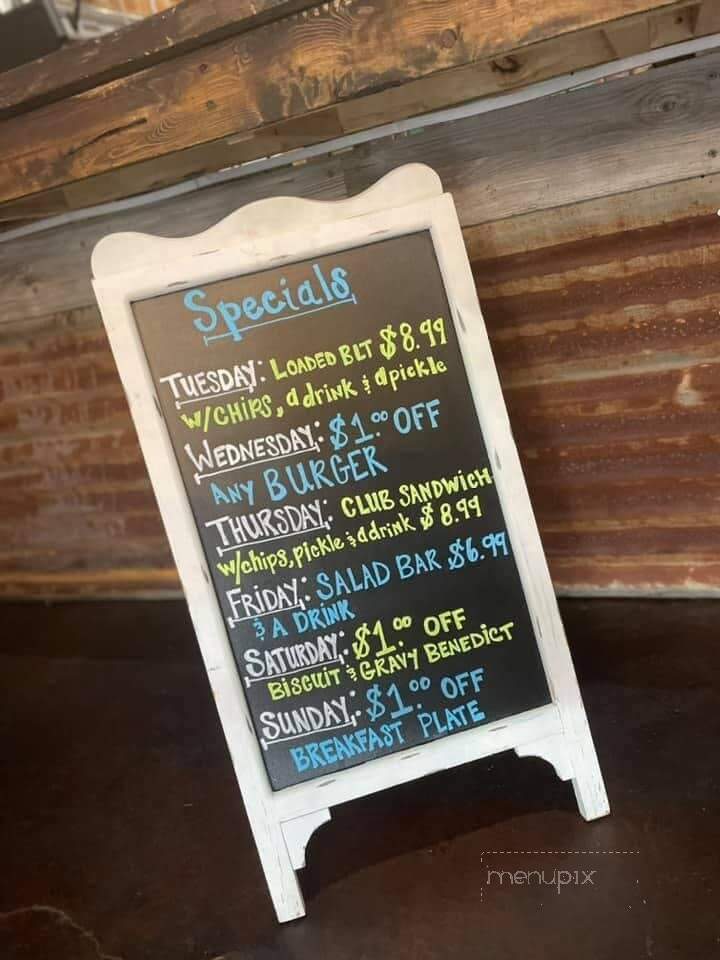 Specials
TUESDAY: LOADED BLT $8.99
W/CHIPS, a drink & a pickle
WEDNESDAY: $1.00 OFF
ANY BURGER
THURSDAY: CLUB SANDWICH
w/chips, pickle & a drink $8.99
FRIDAY: SALAD BAR $6.99
& A DRINK
SATURDAY: $1.00 OFF
BISCUIT & GRAVY BENEDICT
SUNDAY: $1.00 OFF
BREAKFAST PLATE
menupix